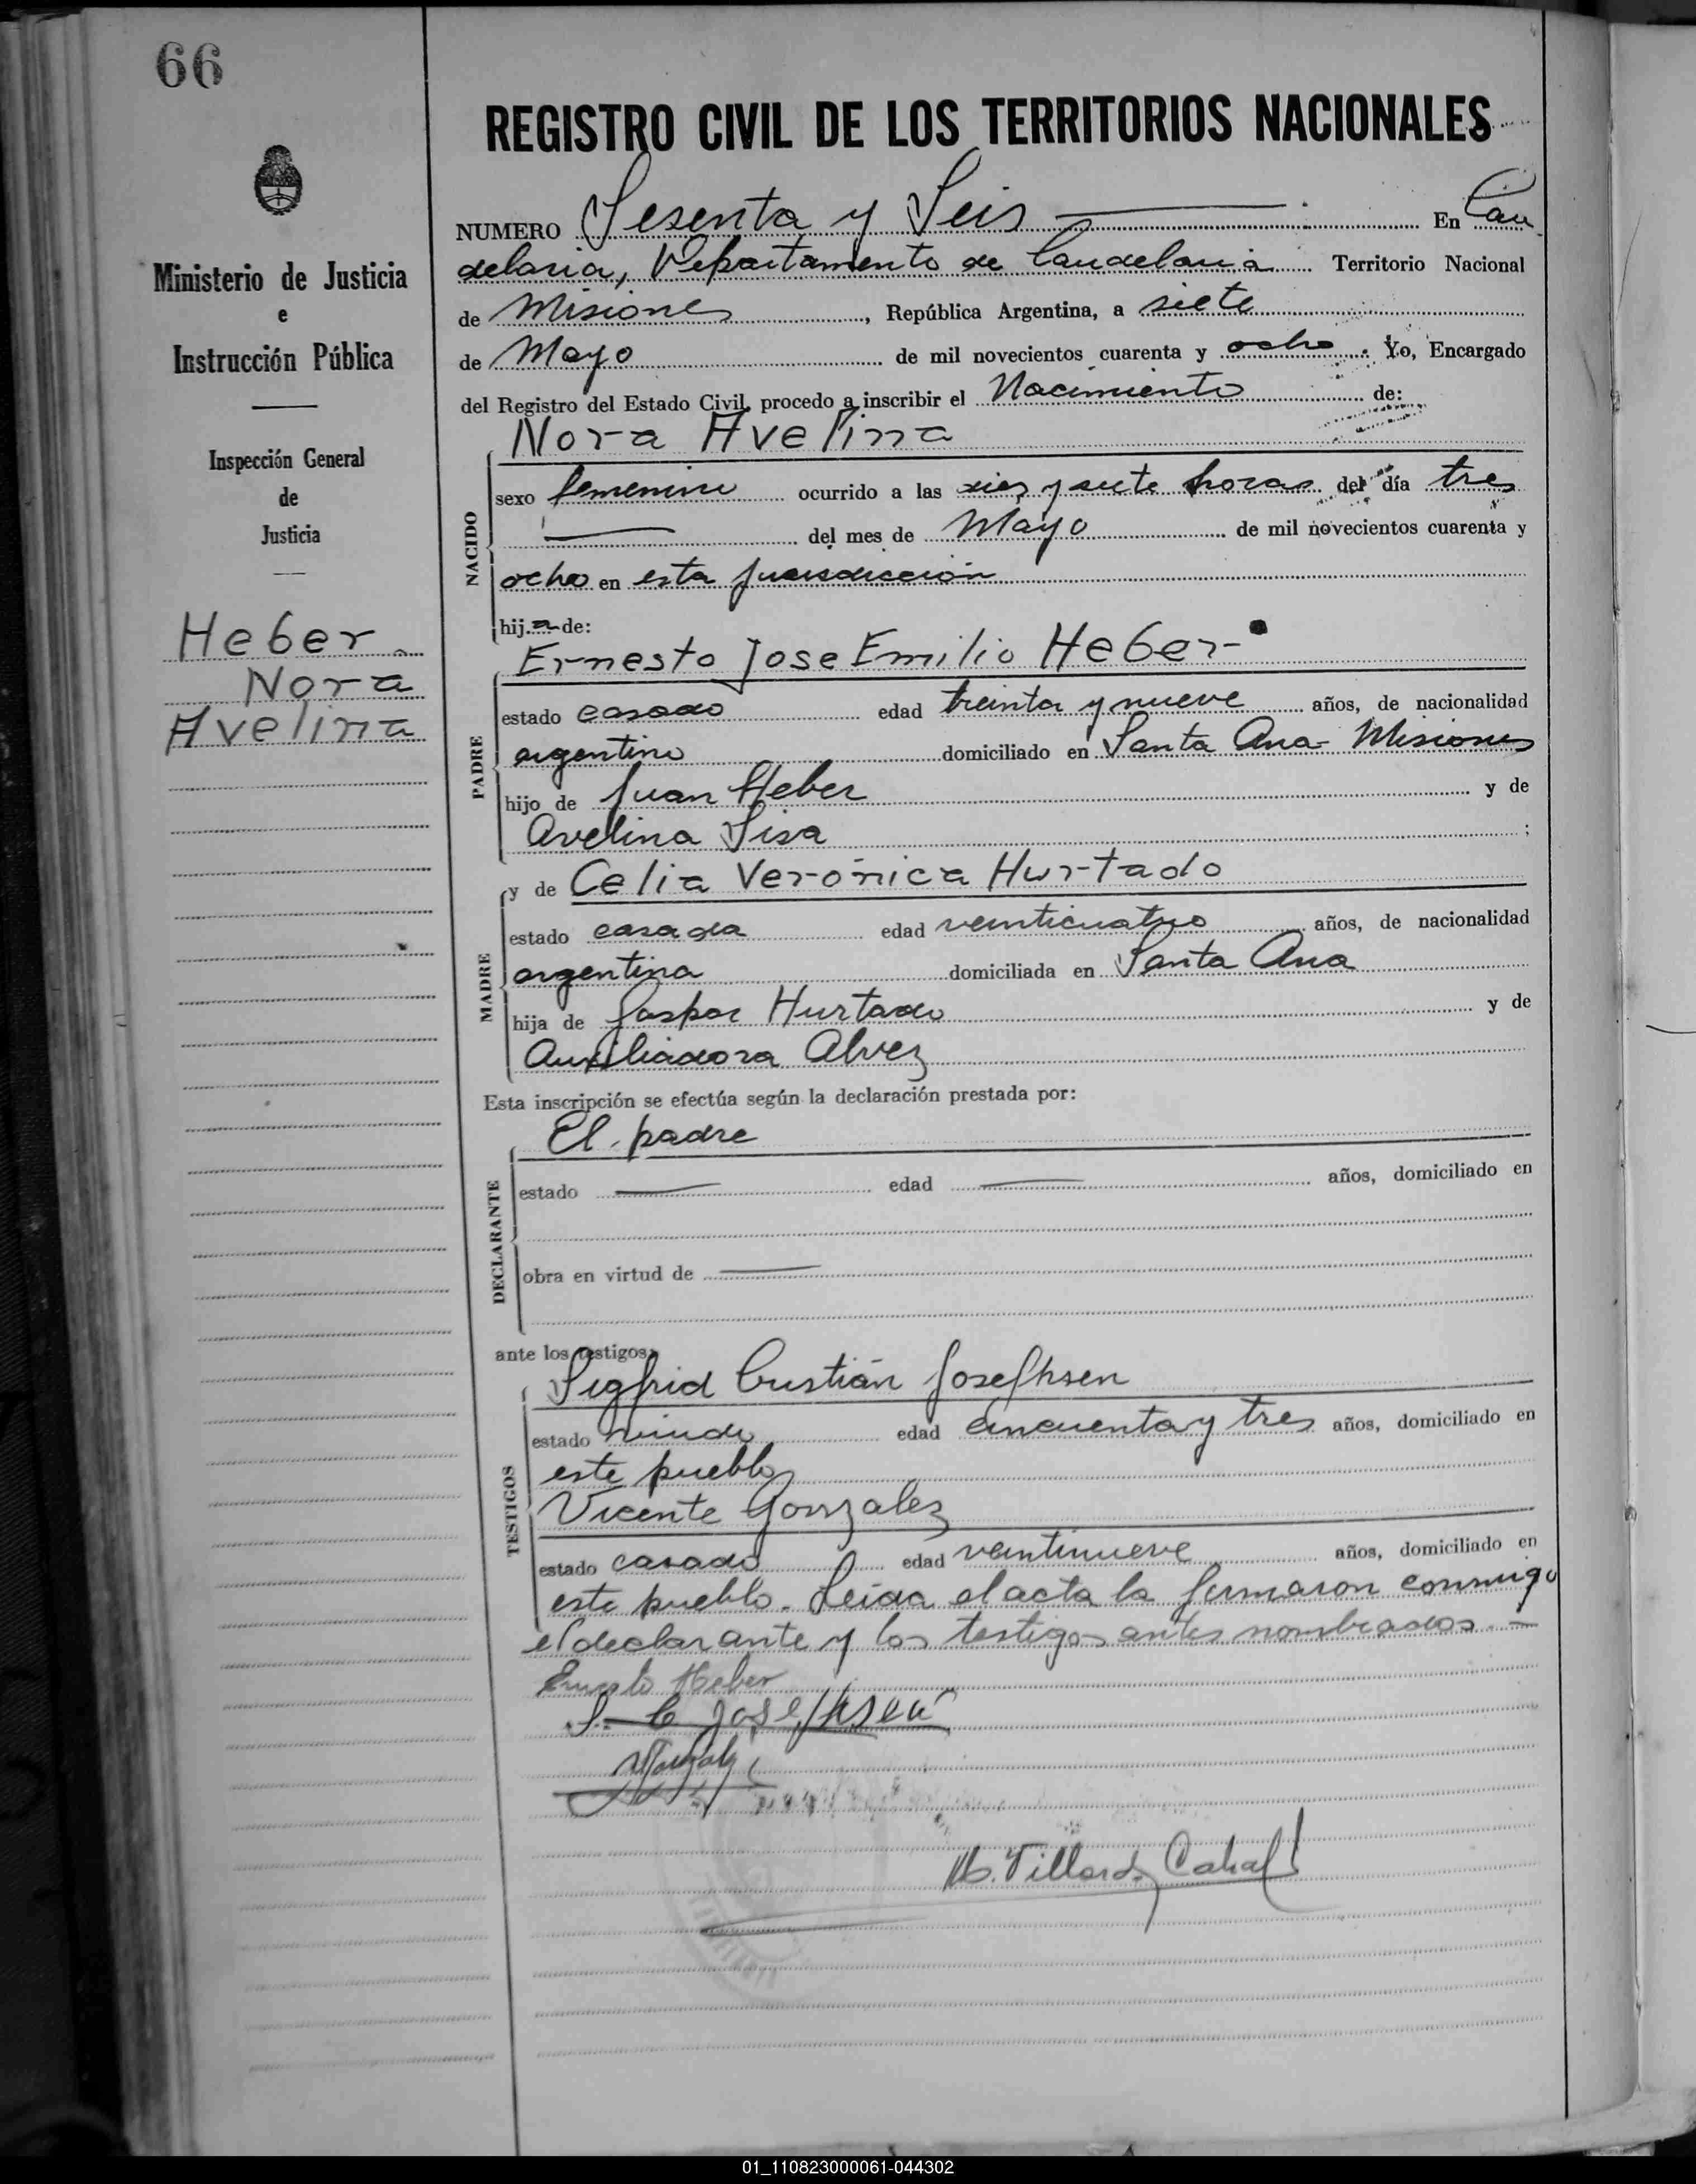 66
REGISTRO CIVIL DE LOS TERRITORIOS NACIONALES
Ministerio de Justicia
e
Instrucción Pública
Inspección General
de
Justicia
Heber
Nora
Avelina
NUMERO Sesenta y Seis En Can
delaria, Departamento de Candelaria Territorio Nacional
de Misiones, República Argentina, a siete
de Mayo de mil novecientos cuarenta y ocho. Yo, Encargado
del Registro del Estado Civil, procedo a inscribir el Nacimiento de:
Nora Avelina
NACIDO
sexo femenino ocurrido a las diez y siete horas del día tres
del mes de Mayo de mil novecientos cuarenta y
ocho en esta jurisdicción
hija de:
Ernesto Jose Emilio Heber
PADRE
estado casado edad treinta y nueve años, de nacionalidad
argentino domiciliado en Santa Ana - Misiones
hijo de Juan Heber y de
Avelina Sisa;
y de Celia Verónica Hurtado
MADRE
estado casada edad veinticuatro años, de nacionalidad
argentina domiciliada en Santa Ana
hija de Gaspar Hurtado y de
Auxiliadora Alvez
Esta inscripción se efectúa según la declaración prestada por:
El padre
DECLARANTE
estado edad años, domiciliado en
obra en virtud de
ante los testigos:
Sigfrid Cristián Josephsen
TESTIGOS
estado viudo edad cincuenta y tres años, domiciliado en
este pueblo
Vicente Gonzalez
estado casado edad veintinueve años, domiciliado en
este pueblo. Leída el acta la firmaron conmigo
el declarante y los testigos antes nombrados. -
Ernesto Heber
S. C Josephsen
01_110823000061-044302